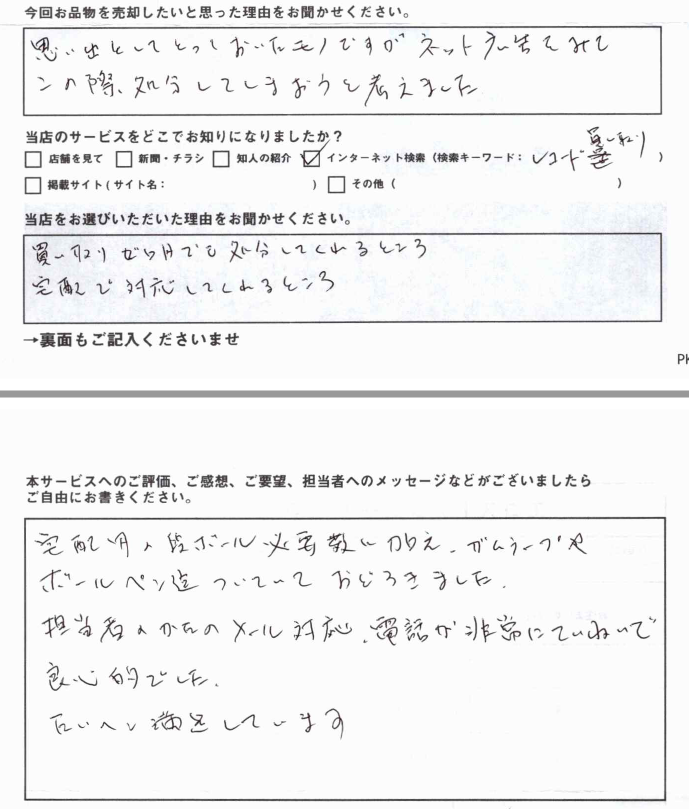 今回お品物を売却したいと思った理由をお聞かせください。
思い出としてとっておいたモノですがネット広告をみて
この際、処分してしまおうと考えました
当店のサービスをどこでお知りになりましたか?
□ 店舗を見て □ 新聞・チラシ □ 知人の紹介 ☑ インターネット検索 (検索キーワード: レコード買い取り )
□ 掲載サイト(サイト名: ) □ その他 ( )
当店をお選びいただいた理由をお聞かせください。
買い取りゼロ円でも処分してくれるところ
宅配で対応してくれるところ
→裏面もご記入くださいませ
PK
本サービスへのご評価、ご感想、ご要望、担当者へのメッセージなどがございましたら
ご自由にお書きください。
宅配用の段ボール必要数に加え、ガムテープや
ボールペン迄ついていておどろきました.
担当者のかたのメール対応、電話が非常にていねいで
良心的でした.
たいへん満足しています